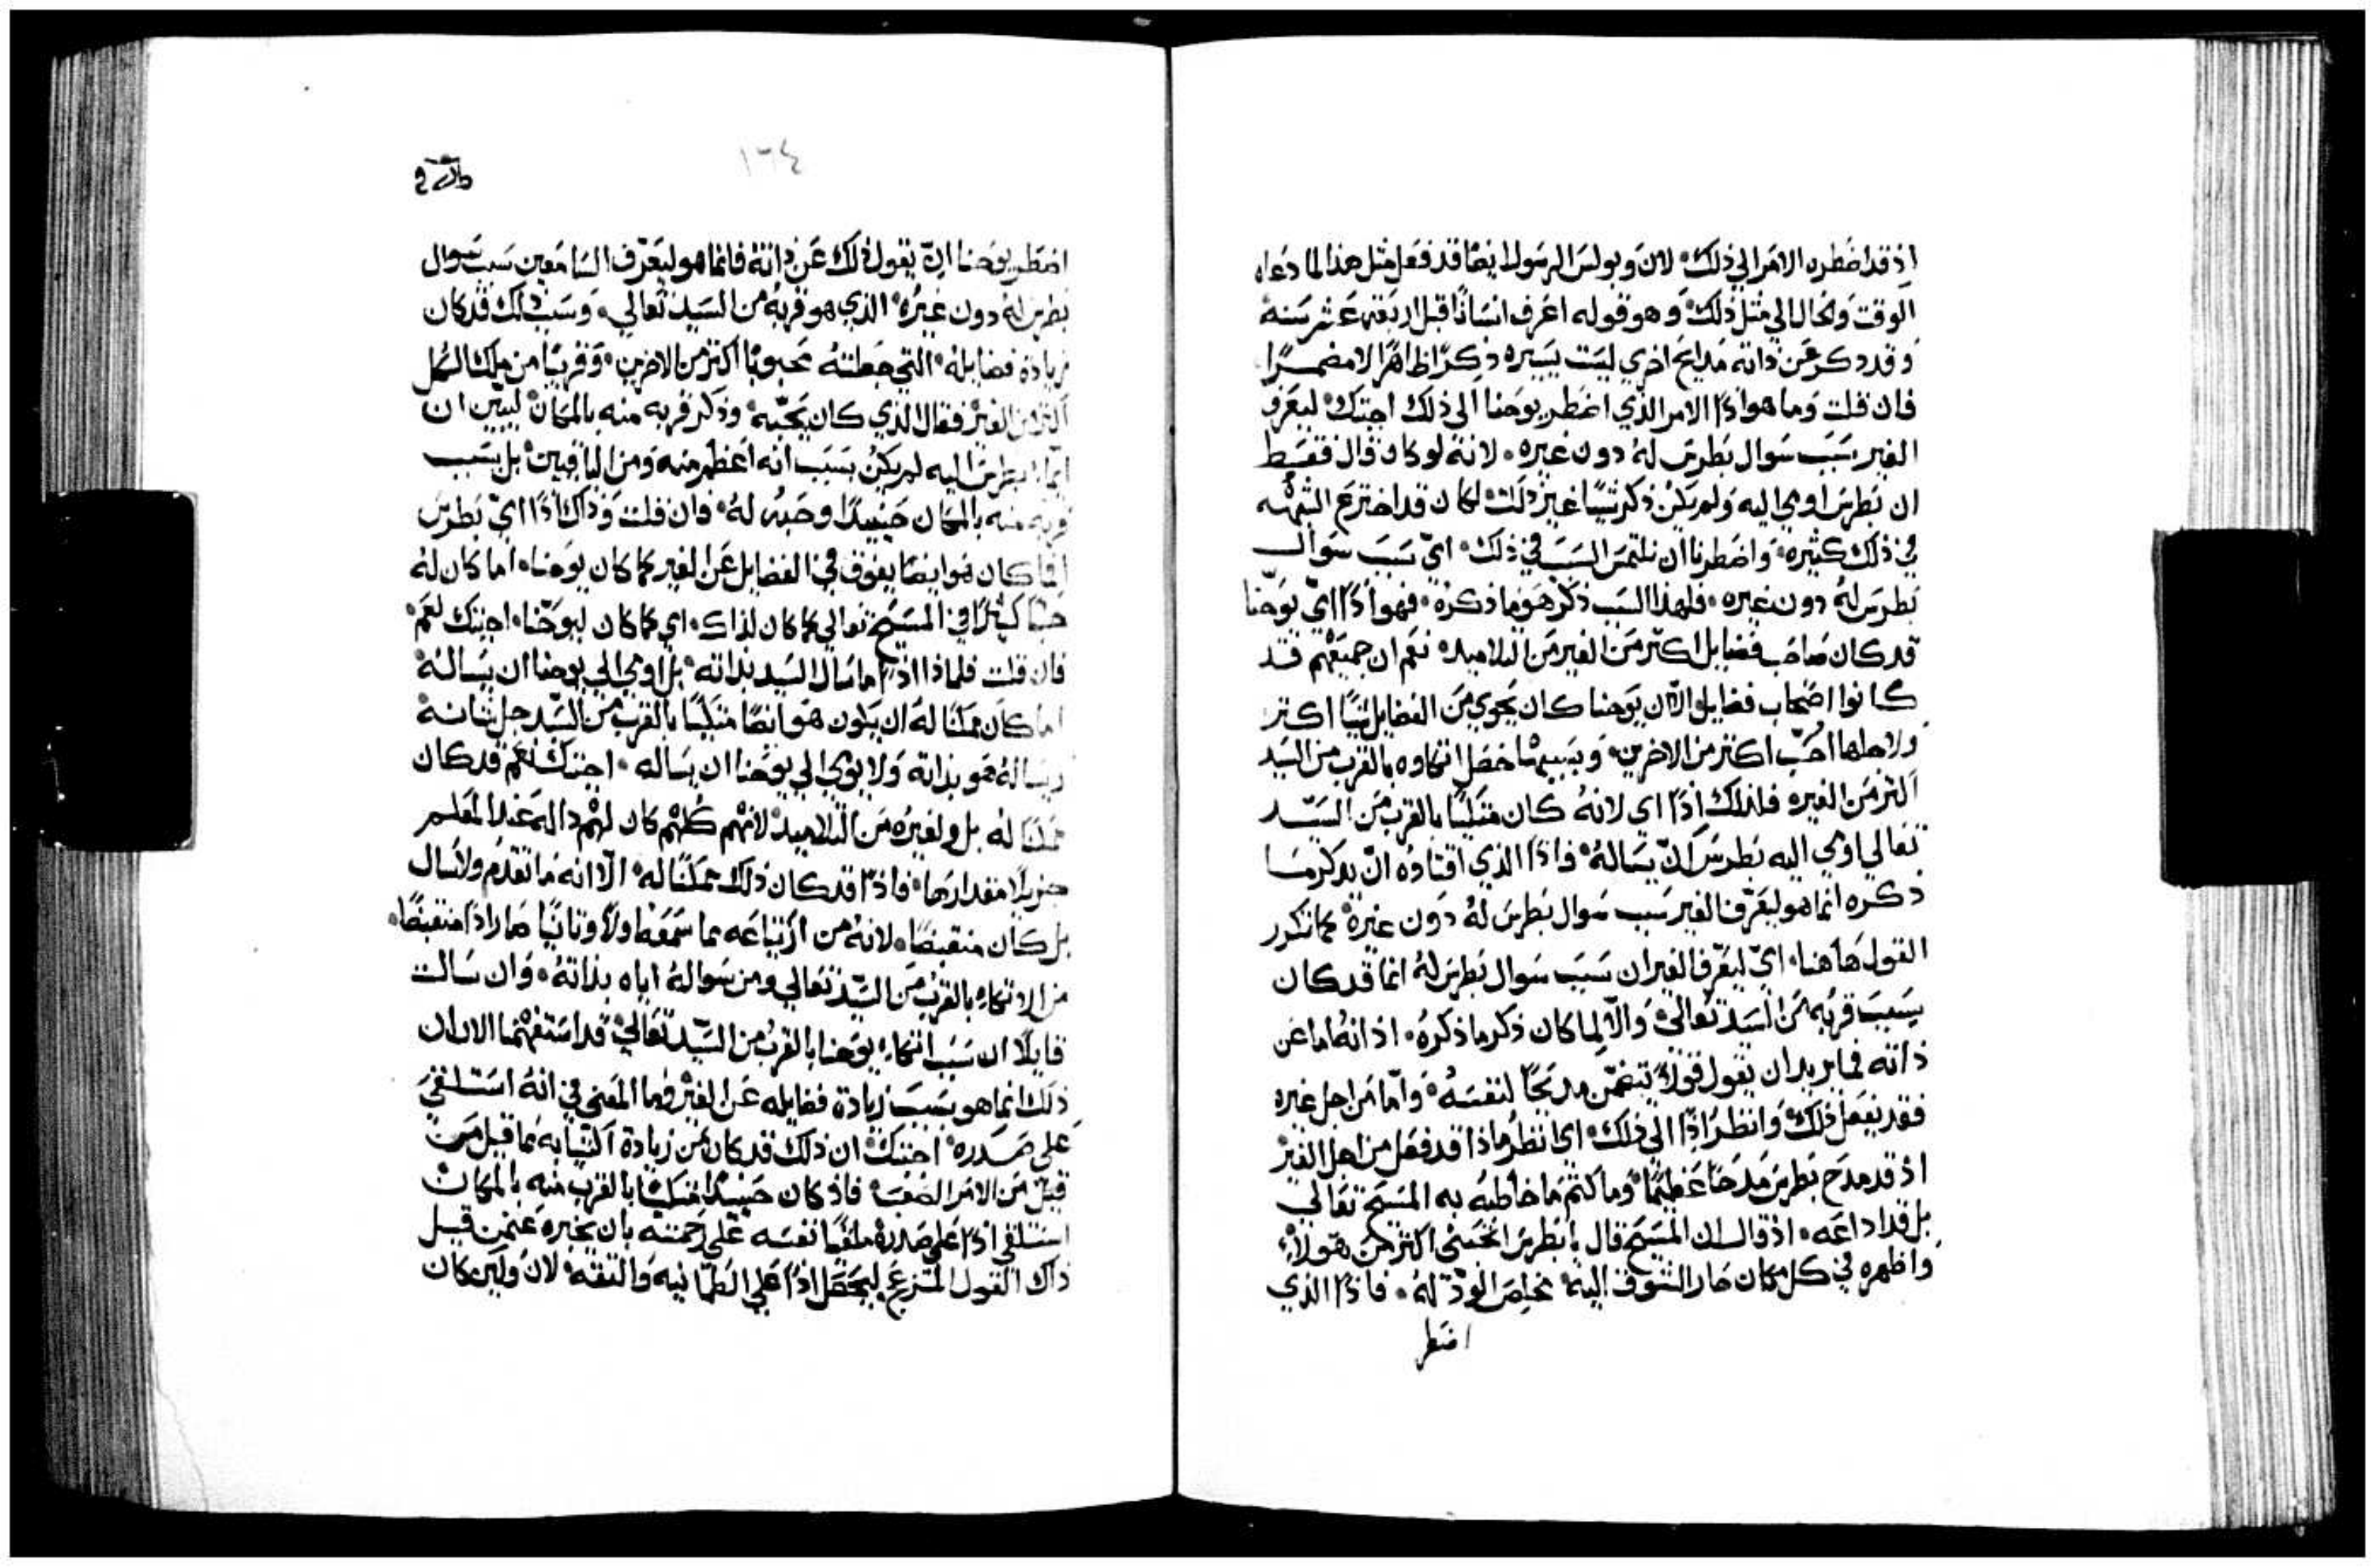 اذ قد اضطره الامر الي ذلك. لان وبولس الرسول ايضا قد فعل مثل هذا لما دعاه
الوقت والحال الي مثل ذلك. وهو قوله اعرف انسانًا قبل اربعة عشر سنة
وقد ذكر عن ذاته مدايح اخري ليست يسيره ذكرًا ظاهرًا لا مضمرًا
فان قلت وما هو اذًا الامر الذي اضطر يوحنا الي ذلك اجبتك. ليعرف
الغير سبب سوال بطرس له دون غيره. لانه لو كان قال فقط
ان بطرس اومي اليه ولم يكن ذكر شيًا غير ذلك. لكان قد اخترع الشبهه
في ذلك كثيره. واضطرنا ان نلتمس السبب في ذلك. اي سبب سوال
بطرس له دون غيره. فلهذا السبب ذكر هو ما ذكره. فهو اذًا اي يوحنا
قد كان صاحب فضايل اكثر من الغير من التلاميد. نعم ان جميعهم قد
كانوا اصحاب فضايل والا ان يوحنا كان يحوي من الفضايل شيًا اكتر
ولاجلها احُبّ اكتر من الاخرين. وبسببها حصل اتكاوه بالقرب من السيد
اكثر من الغير. فلذلك اذًا اي لانه كان متكيًا بالقرب من السيد
تعالي اومي اليه بطرس ان يساله. فاذًا الذي اقتاده ان يذكر ما
ذكره انما هو ليعرف الغير سبب سوال بطرس له دون غيره. كما تكرر
القول هاهنا. اي ليعرف الغير ان سبب سوال بطرس له انما قد كان
بسبب قربه من السيد تعالي. والا لما كان ذكر ما ذكره. اذ انه اما عن
ذاته فما يريد ان يقول قولًا يتضمن مديحًا لنفسه. واما من اجل غيره
فقد يفعل ذلك. وانظر اذًا الي ذلك. اي انظر ماذا قد فعل من اجل الغير
اذ قد مدح بطرس مدحًا عظيمًا وما كتم ما خاطبه به المسيح تعالي
بل قد اذاعه. اذ قال ان المسيح قال يا بطرس اتحبني اكتر من هولاء.
واظهره في كل مكان حار الشوق اليه. مخلص الود له. فاذًا الذي
اضطر
١٦٤
اضطر يوحنا ان يقول ذلك عن ذاته فانما هو ليعرف السامعين سبب سوال
بطرس له دون غيره. الذي هو قربه من السيد تعالي. وسبب ذلك قد كان
زيادة فضايله. التي جعلته محبوبًا اكثر من الاخرين. وقريبًا من ملك الكل
اكثر من الغير. فقال الذي كان يحبه. وذكر قربه منه بالمكان. ليبين ان
ايماء بطرس اليه لم يكن بسبب انه اعظم منه ومن الباقيين. بل بسبب
قربه منه بالمكان حينيذًا وحبه له. فان قلت وذاك اذًا اي بطرس
اما كان هو ايضا يفوق في الفضايل عن الغير كما كان يوحنا. اما كان له
حبًا كثيرًا في المسيح تعالي كما كان لذاك. اي كما كان ليوحنا. اجبتك نعم.
فان قلت فلماذا اذًا ما سال السيد بذاته. بل اومي الي يوحنا ان يساله
اما كان ممكنا له ان يكون هو ايضًا متكيًا بالقرب من السيد جل شانه
ويساله هو بذاته ولا يومي الي يوحنا ان يساله. اجبتك نعم قد كان
ممكنا له بل ولغيره من التلاميد. لانهم كلهم كان لهم داله عند المعلم
جزيلًا مقدارها. فاذًا قد كان ذلك ممكنًا له. الا انه ما تقدم ولا سال
بل كان منقبضًا. لانه من ارتياعه مما سمعه اولًا وثانيًا صار اذًا منقبضًا.
من الاتكاء بالقرب من السيد تعالي ومن سواله اياه بذاته. وان سالت
قايلًا ان سبب اتكاء يوحنا بالقرب من السيد تعالي. قد استفهمنا الان ان
ذلك انما هو بسبب زيادة فضايله عن الغير. فما المعني في انه استلقي
علي صدره. اجبتك. ان ذلك قد كان من زيادة اكتيابه مما قيل من
قبل من الامر الصعب. فاذ كان حينيذًا متكيًا بالقرب منه بالمكان
استلقي اذًا علي صدره ملقيًا نفسه علي رحمته بان يخبره عمن قيل
ذاك القول المزعج. ليحصل اذًا علي الطمانيه والثقه. لان ولين كان